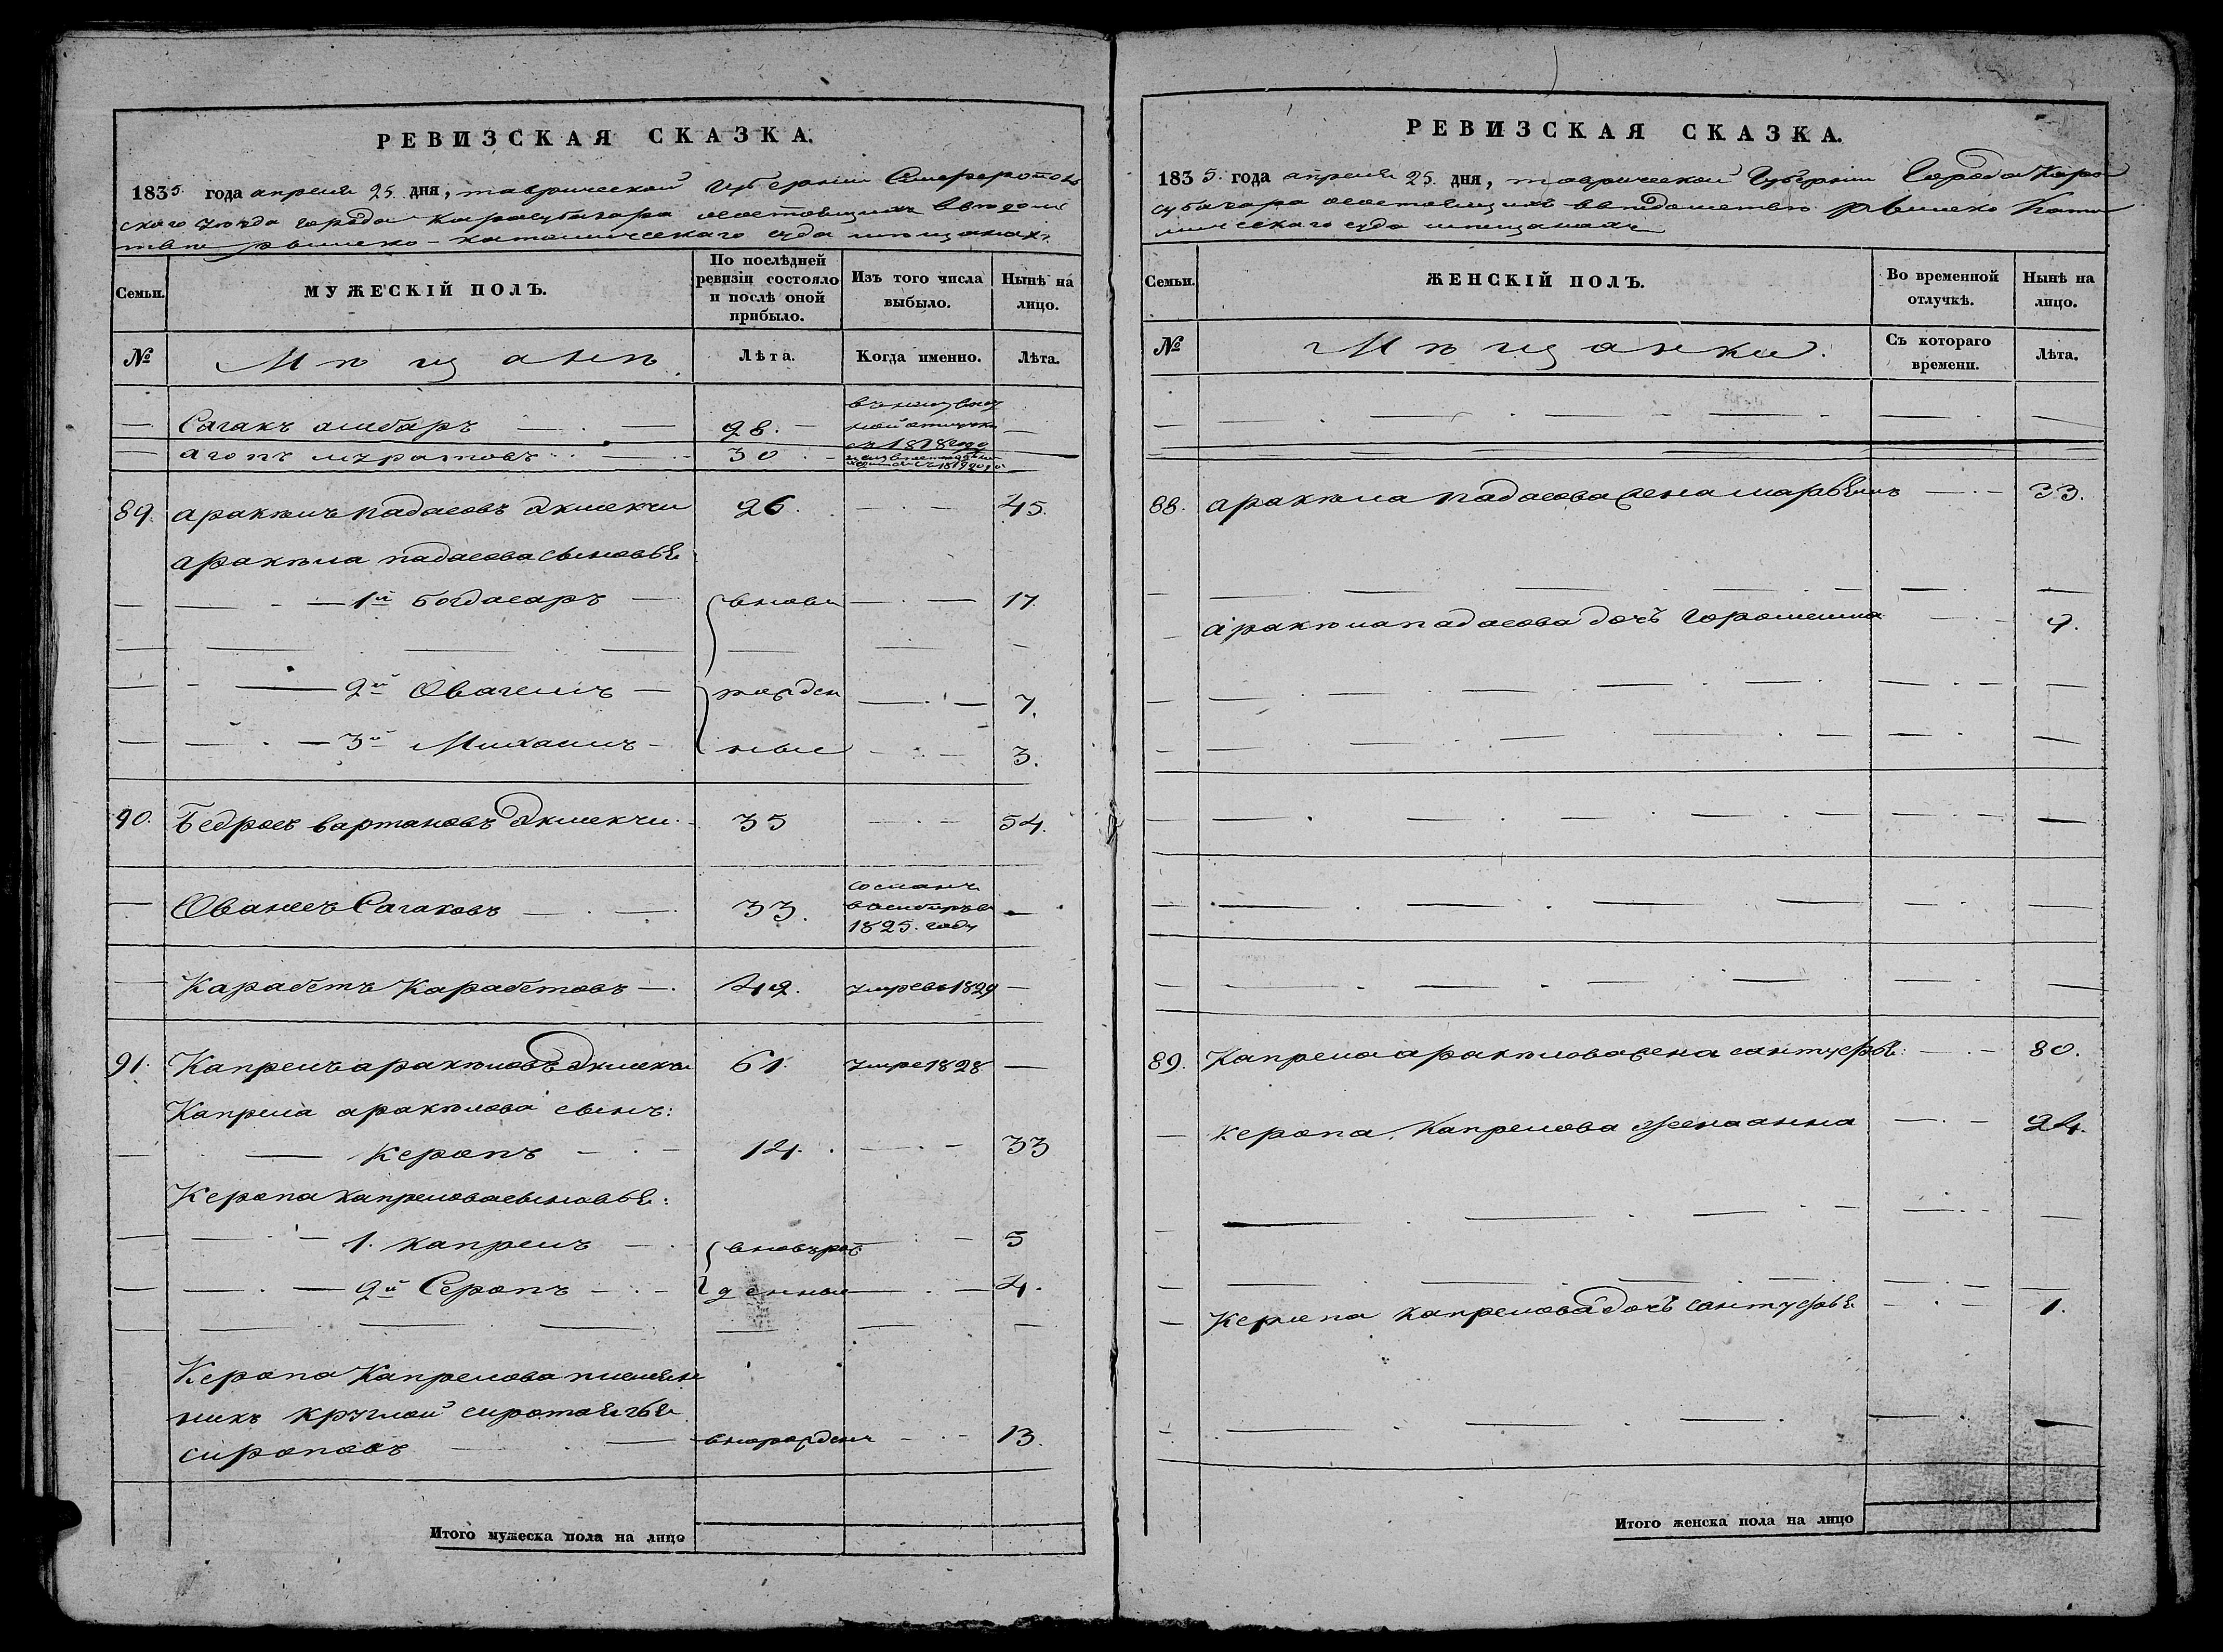 РЕВИЗСКАЯ СКАЗКА.
1835. года апреля 25. дня, таврической Губернии Симферополь
ского уезда города Карасубазара состоящихъ ввѣдомс
твѣ рымско-католическаго суда мѣщанахъ.
Семьи.
МУЖЕСКІЙ ПОЛЪ.
По послѣдней ревизіи состояло и послѣ оной прибыло.
Изъ того числа выбыло.
Нынѣ на лицо.
№
Мѣщанѣ
Лѣта.
Когда именно.
Лѣта.
— Сагакъ 28. —
съ 1818 году
— агопъ муратовъ 30
89. аракѣлъ падасовъ экмекчи 26. 45.
аракѣла падасова сыновья
1й Богдасаръ вновь 17
2й Овагемъ рожден 7.
3й Михаилъ ные 3.
90. Бедросъ вартановъ экмекчи 35 54.
— Ованесъ Сагаковъ 33.
1825. году
— Карабетъ Карабетовъ 42. умревъ 1829 —
91. Капрелъ аракѣловъ экмекчи 61. умре 1828 —
Капрела аракѣлова сынъ:
Керопъ 14. 33
Керопа капрелова сыновья:
1. капрелъ вновьрож 5
2й Серопъ денные 4.
Керопа Капрелова племян
никъ круглой сирота
сироповъ 13.
Итого мужеска пола на лицо
РЕВИЗСКАЯ СКАЗКА.
1835. года апреля 25. дня, таврической Губернии Города Кара
субазара состоящихъ ввѣдомствѣ рымско Като
лическаго суда мѣщанахъ
Семьи.
ЖЕНСКІЙ ПОЛЪ.
Во временной отлучкѣ.
Нынѣ на лицо.
№
Мѣщанки.
Съ котораго времени.
Лѣта.
88. аракѣла падасова жена марьямъ 33.
аракѣла падасова дочь 9.
89. Капрела аракѣлова жена сантуфья 80.
— Керопа. Капрелова жена анна 24.
— Керопа капрелова дочь сантуфья 1.
Итого женска пола на лицо